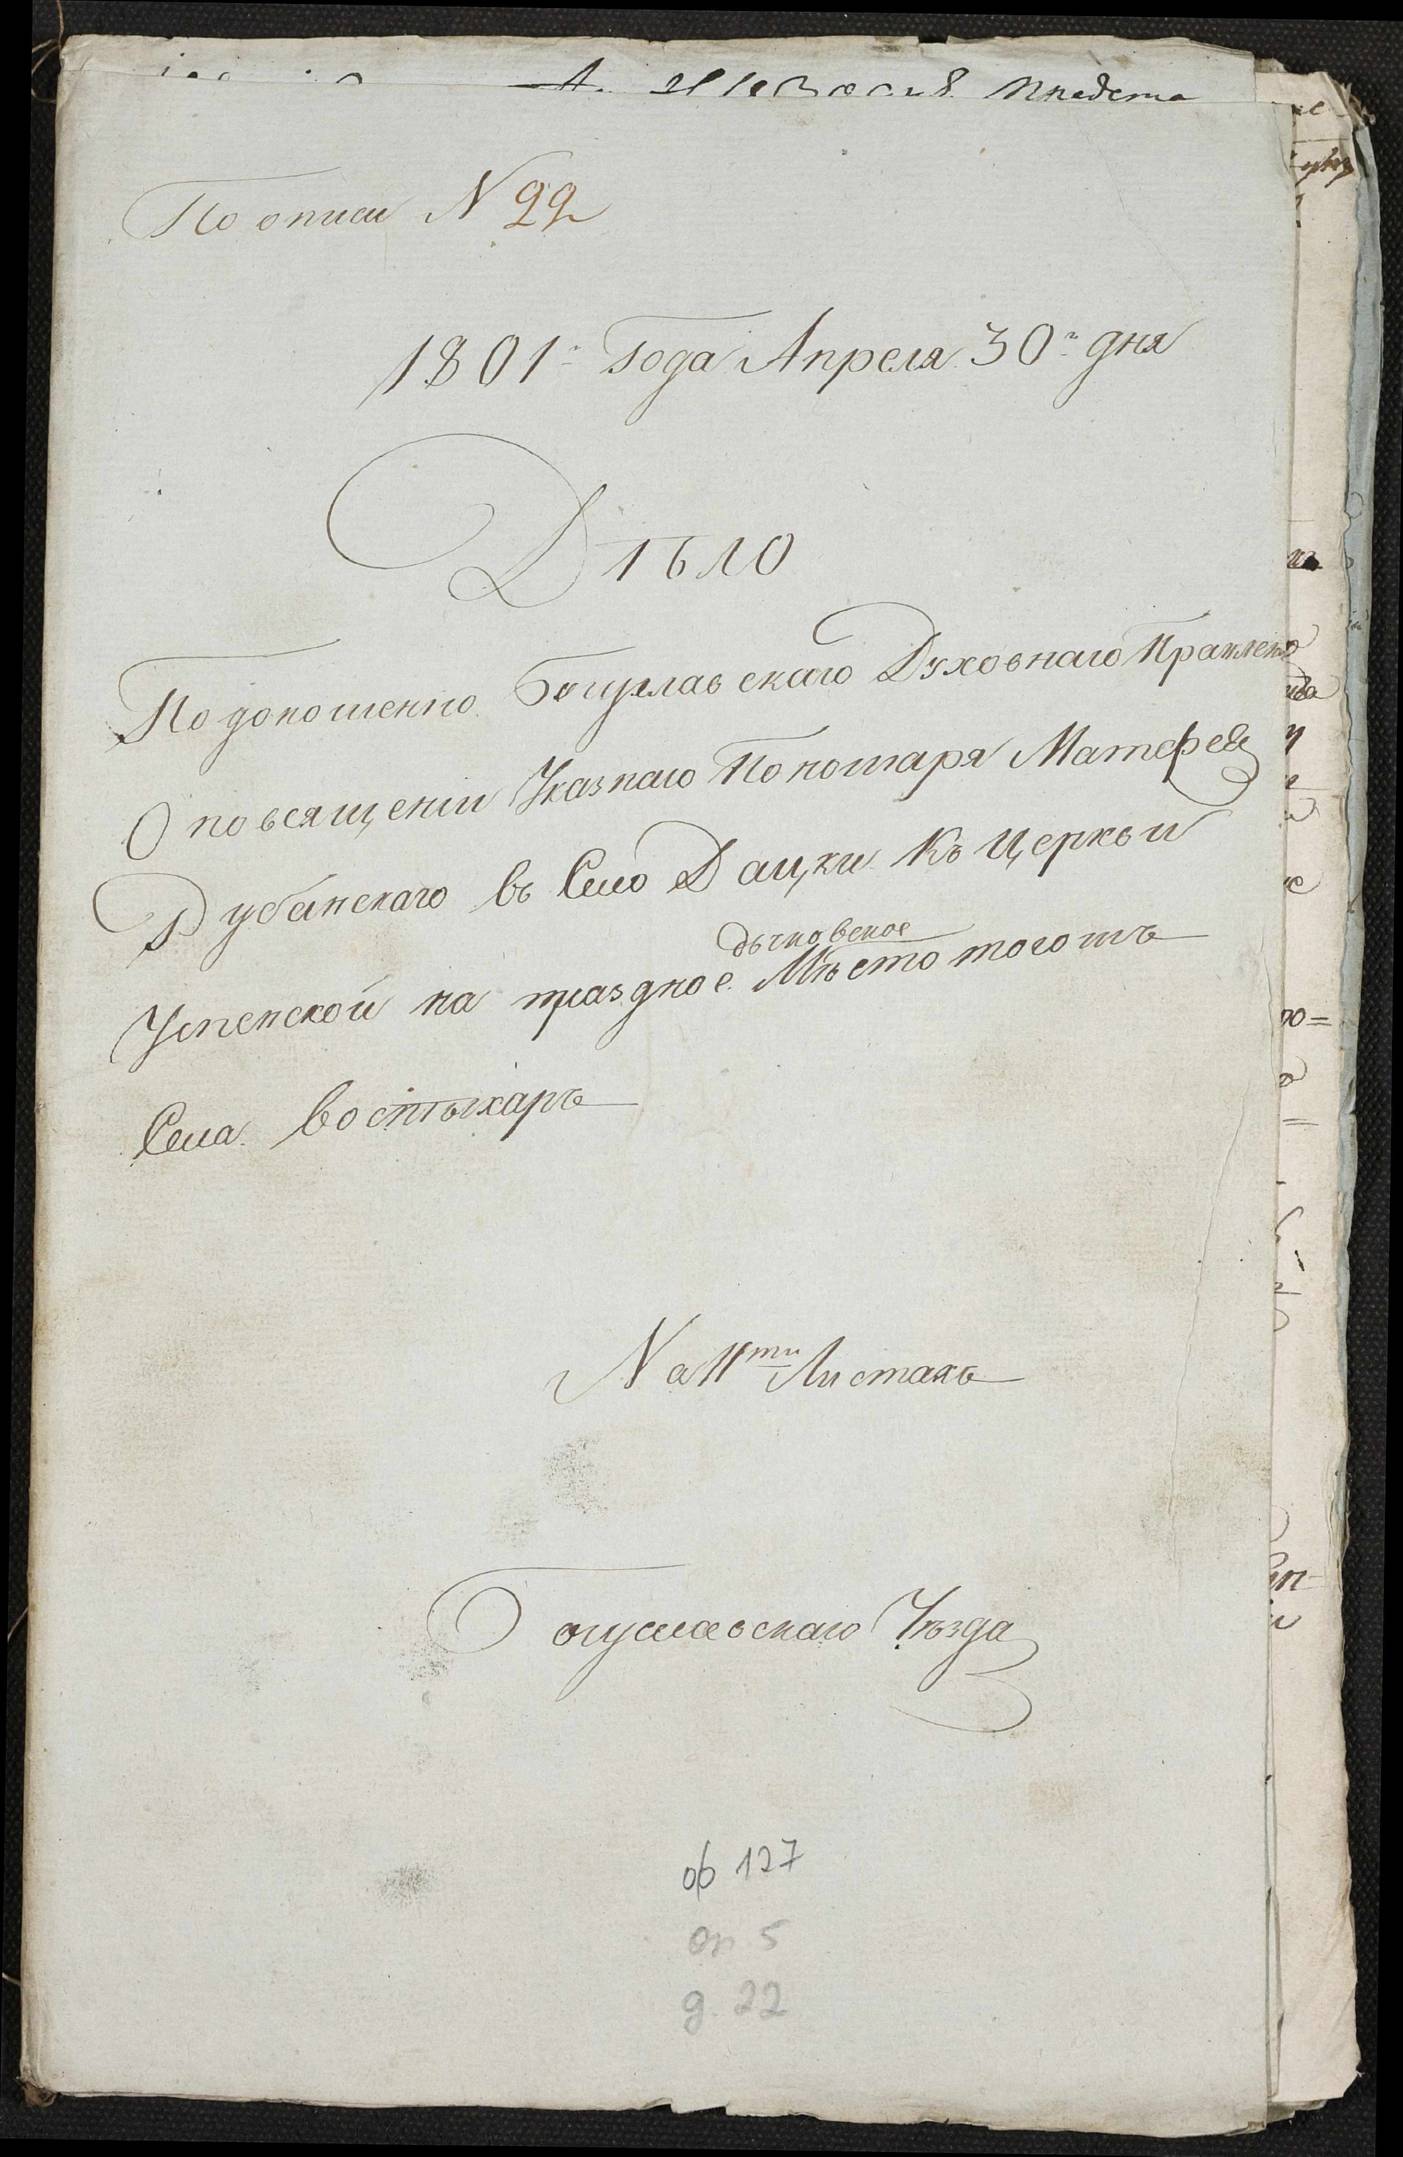 По описи N 22
1801г года Апреля 30г дня
Дѣло
По доношению Богуславскаго Духовнаго Правления
О посвящении Указнаго Пономаря Матфея
Рубанскаго въ Село Дацки къ Церкви
дьячковское
Успенской на праздное Мѣсто тогожъ
Села во стыхарь
На 11ти Листахъ
Богуславскаго Уѣзда
ф 127
оп 5
д. 22